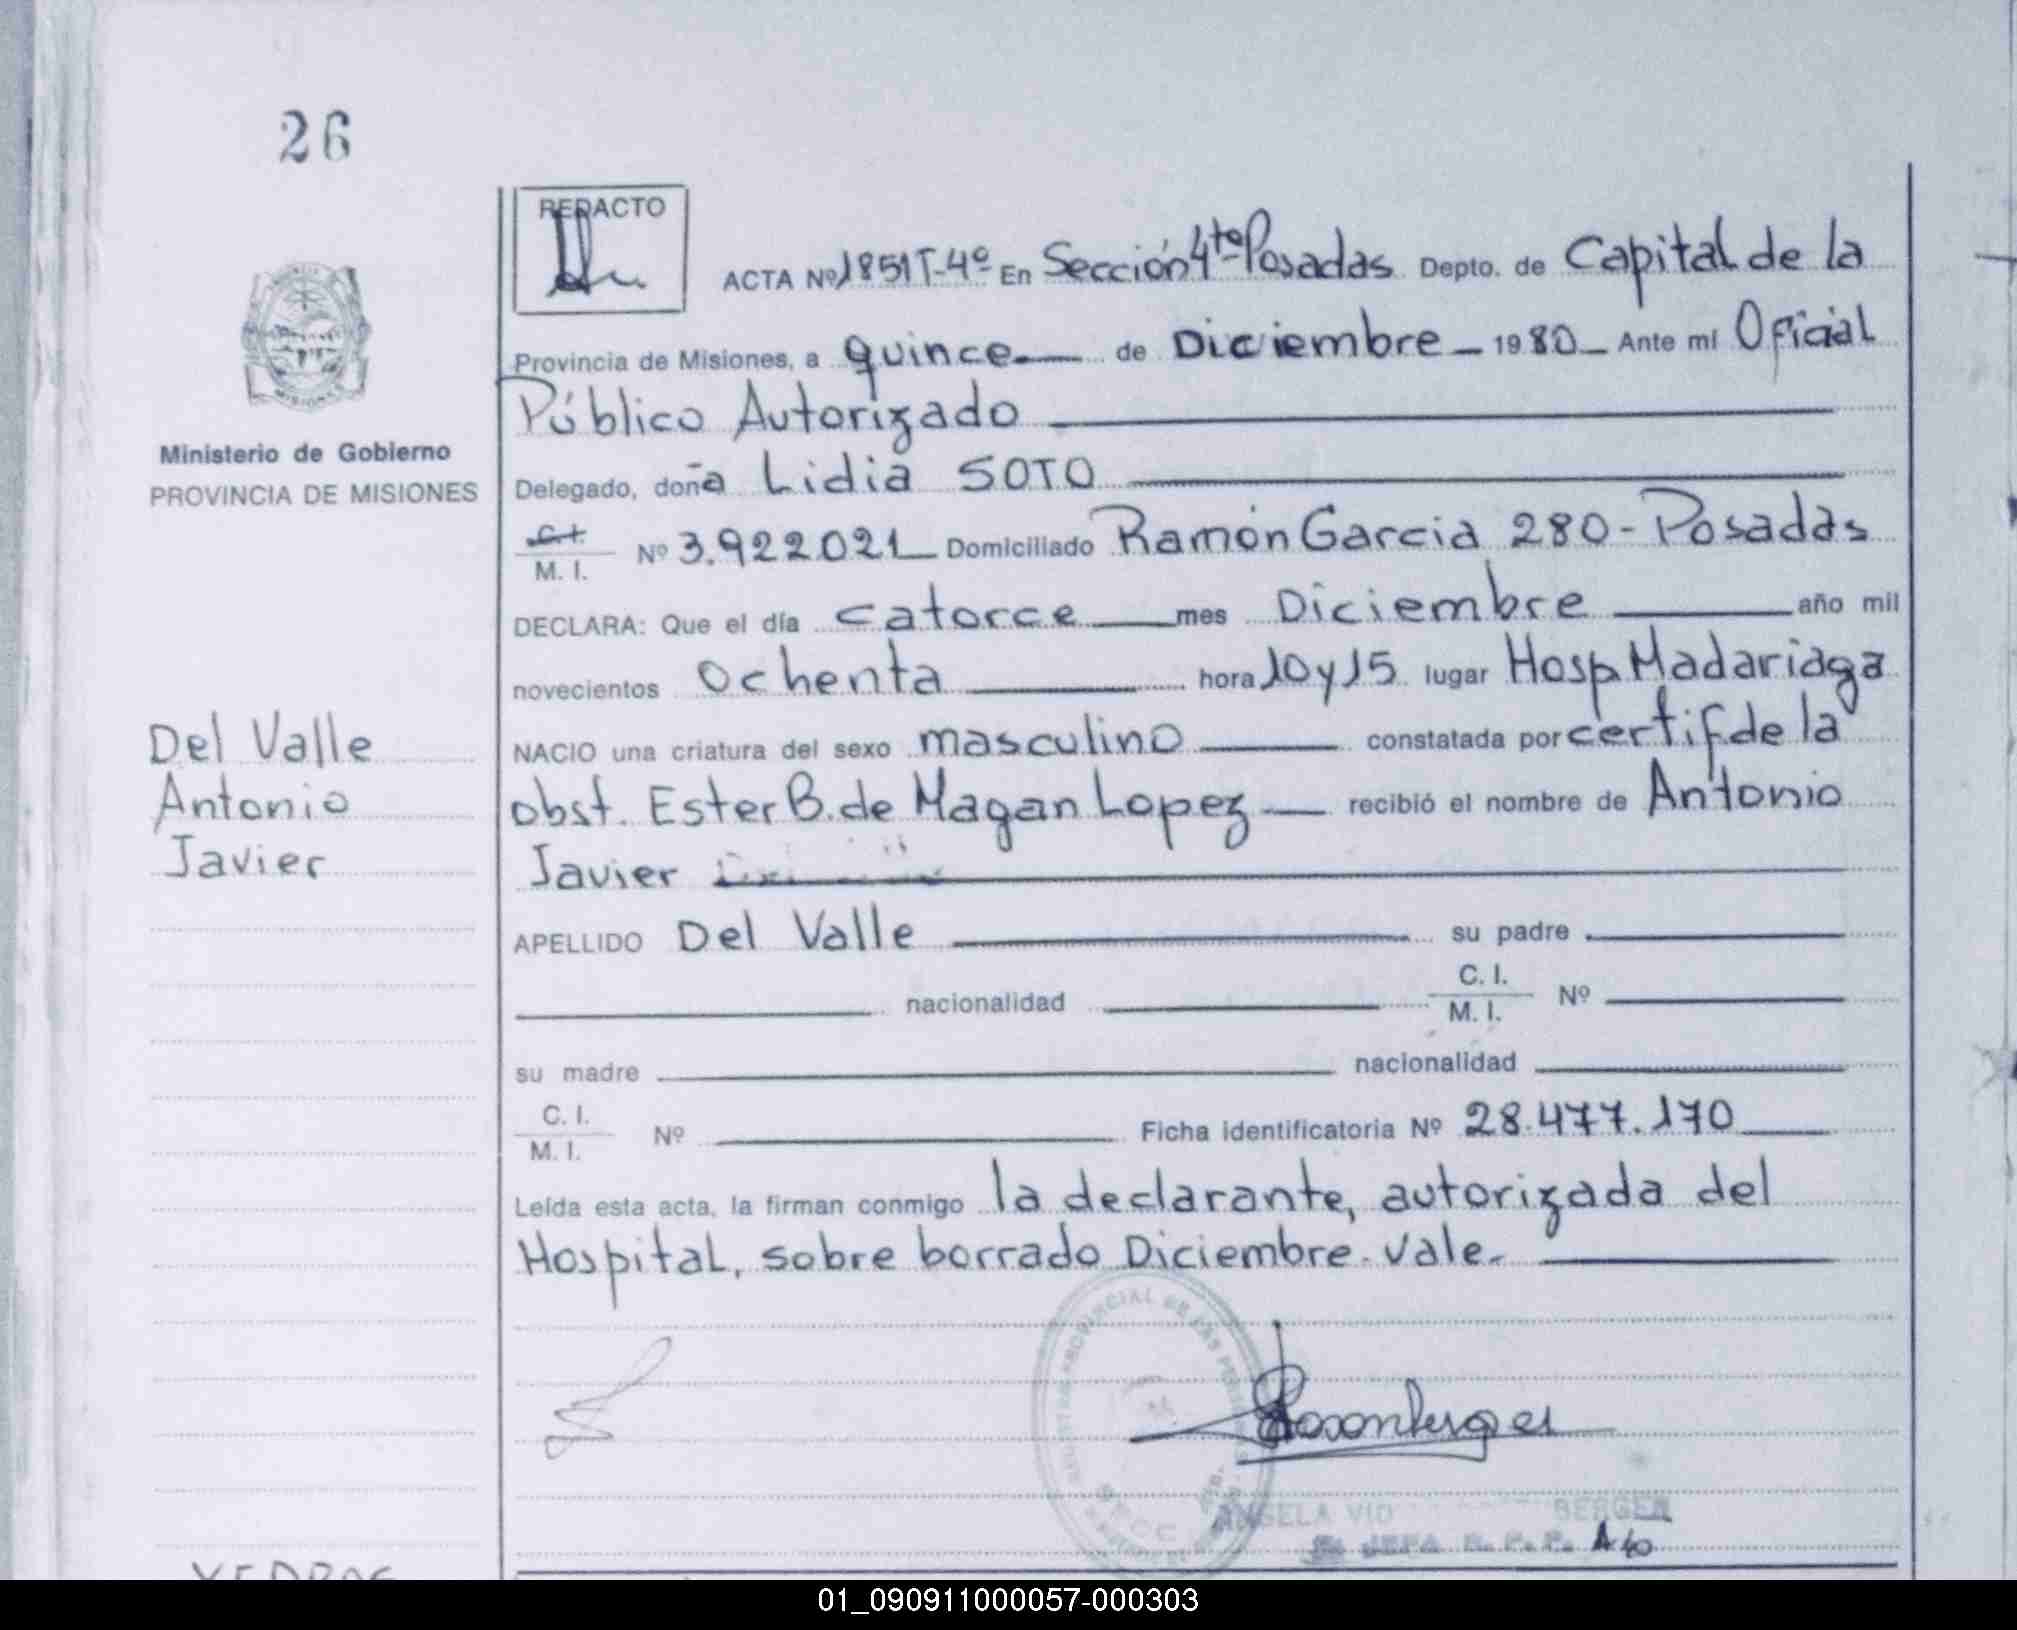 26
REDACTO
ACTA Nº 1851 T-4º En Sección 4ta Posadas Depto. de Capital de la
Provincia de Misiones, a quince de Diciembre 1980 Ante mí Oficial
Público Autorizado
Ministerio de Gobierno
PROVINCIA DE MISIONES
Delegado, doña Lidia SOTO
C.I. M. I. Nº 3.922021 Domiciliado Ramón Garcia 280 - Posadas
DECLARA: Que el día catorce mes Diciembre año mil
novecientos Ochenta hora 10 y 15 lugar Hosp. Madariaga
Del Valle
Antonio
Javier
NACIO una criatura del sexo masculino constatada por certif. de la
obst. Ester B. de Magan Lopez recibió el nombre de Antonio
Javier
APELLIDO Del Valle su padre
nacionalidad C. I. M. I. Nº
su madre nacionalidad
C. I. M. I. Nº Ficha identificatoria Nº 28.477.170
Leída esta acta, la firman conmigo la declarante, autorizada del
Hospital, sobre borrado Diciembre. Vale.
ANGELA BERGER
JEFA R. P. P.
01_090911000057-000303